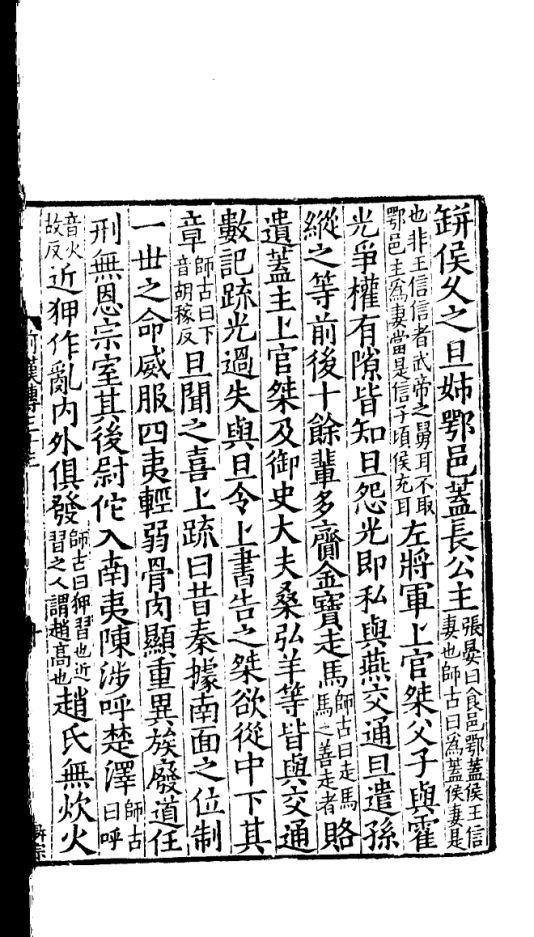 缾侯久之旦姊鄂邑蓋長公主張晏曰食邑鄂蓋侯王信妻也師古曰爲蓋侯妻是
也非王信信者武帝之舅耳不取鄂邑主爲妻當是信子頃侯充耳左將軍上官桀父子與霍
光爭權有隙皆知旦怨光即私與燕交通旦遣孫
縱之等前後十餘輩多齎金寶走馬師古曰走馬馬之善走者賂
遺蓋主上官桀及御史大夫桑弘羊等皆與交通
數記疏光過失與旦令上書告之桀欲從中下其
章師古曰下音胡稼反旦聞之喜上疏曰昔秦據南面之位制
一丗之命威服四夷輕弱骨肉顯重異族廢道任
刑無恩宗室其後尉佗入南夷陳涉呼楚澤師古曰呼
音火故反近狎作亂內外俱發師古曰狎習也近習之人謂趙高也趙氏無炊火